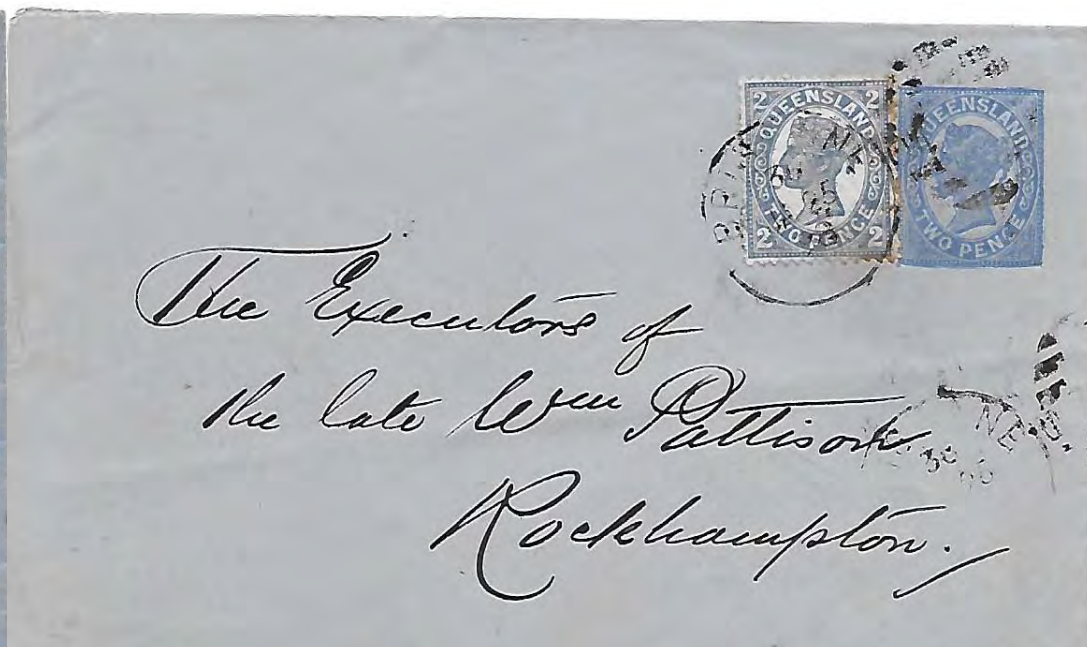 2 QUEENSLAND 2
2 TWO PENCE 2
QUEENSLAND
TWO PENCE
The Executors of
the late Wm Pattison
Rockhampton.